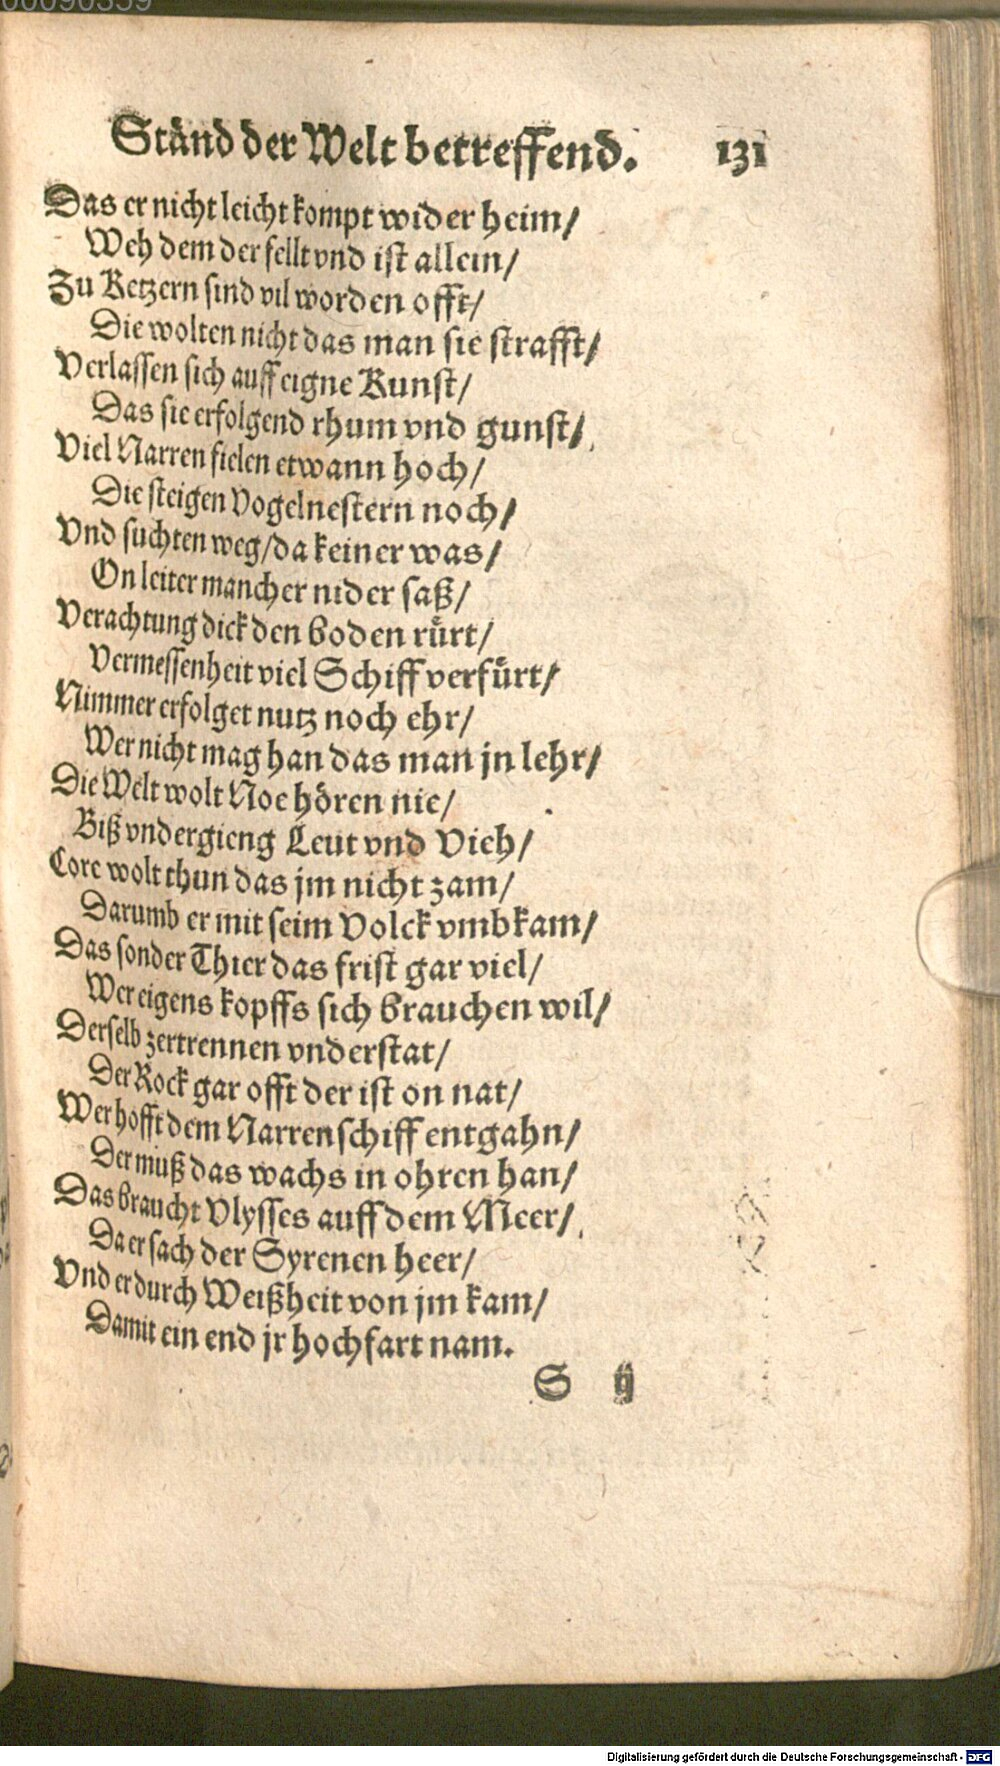 00090359
Ständ der Welt betreffend. 131
Das er nicht leicht kompt wider heim/
Weh dem der fellt vnd ist allein/
Zu Ketzern sind vil worden offt/
Die wolten nicht das man sie strafft/
Verlassen sich auff eigne Kunst/
Das sie erfolgend rhum vnd gunst/
Viel Narren fielen etwann hoch/
Die steigen Vogelnestern noch/
Vnd suchten weg/da keiner was/
On leiter mancher nider saß/
Verachtung dick den boden rürt/
Vermessenheit viel Schiff verfürt/
Nimmer erfolget nutz noch ehr/
Wer nicht mag han das man jn lehr/
Die Welt wolt Noe hören nie/
Biß vndergieng Leut vnd Vieh/
Core wolt thun das jm nicht zam/
Darumb er mit seim Volck vmbkam/
Das sonder Thier das frist gar viel/
Wer eigens kopffs sich brauchen wil/
Derselb zertrennen vnderstat/
Der Rock gar offt der ist on nat/
Wer hofft dem Narrenschiff entgahn/
Der muß das wachs in ohren han/
Das braucht Vlysses auff dem Meer/
Da er sach der Syrenen heer/
Vnd er durch Weißheit von jm kam/
Damit ein end jr hochfart nam.
S ij
Digitalisierung gefördert durch die Deutsche Forschungsgemeinschaft - DFG